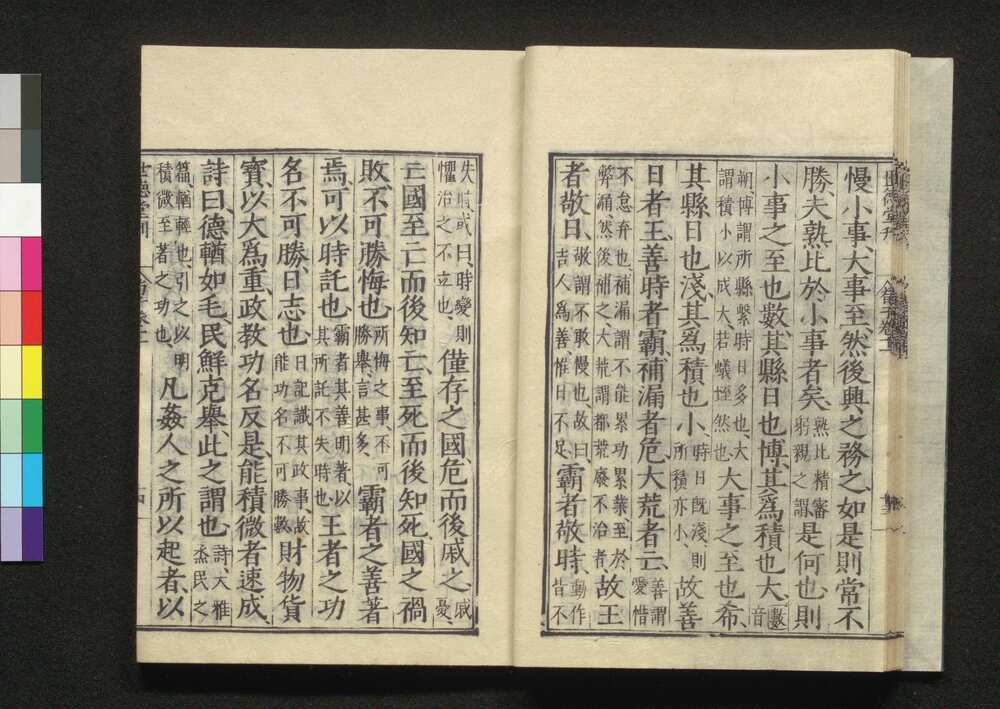 慢小事、大事至、然後興之務之、如是則常不
勝夫熟比於小事者矣、熟比精審躬親之謂是何也、則
小事之至也數、其縣日也博、其爲積也大、數音
朔、博謂所縣繫時日多也、大謂積小以成大若蟻蛭然也大事之至也希、
其縣日也淺、其爲積也小、時日旣淺則所積亦小故善
日者王、善時者霸、補漏者危、大荒者亡、善謂愛惜
不怠弃也、補漏謂不能累功累業至於弊漏、然後補之大荒謂都荒廢不治者故王
者敬日、敬謂不敢慢也故曰、吉人爲善、惟日不足、霸者敬時、動作皆不
失時或曰、時變則懼治之不立也僅存之國危而後戚之、戚憂
亡國至亡而後知亡、至死而後知死、國之禍
敗不可勝悔也、所悔之事、不可勝舉、言甚多、霸者之善著
焉、可以時託也、霸者其善明著、以其所託不失時也王者之功
名不可勝日志也、日記識其政事故能功名不可勝數財物貨
寳、以大爲重、政教功名反是、能積微者速成、
詩曰、德輶如毛、民鮮克舉、此之謂也、詩大雅烝民之
篇、輶輕也、引之以明積微至著之功也凡姦人之所以起者、以
世德堂刊